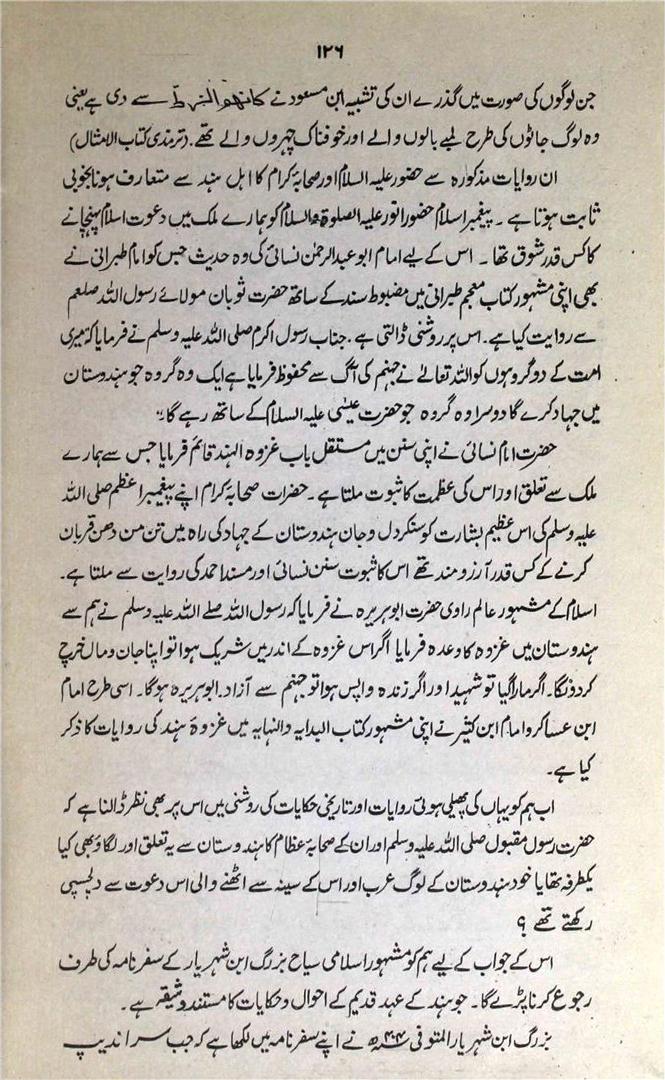 ۱۲۶
جن لوگوں کی صورت میں گذرے ان کی تشبیہ ابن مسعود نے کانهم الزط سے دی ہے یعنی
وہ لوگ جاٹوں کی طرح لمبے بالوں والے اور خوفناک چہروں والے تھے. (ترمذی کتاب الامثال)
ان روایات مذکورہ سے حضور علیہ السلام اور صحابۂ کرام کا اہل ہند سے متعارف ہونا بخوبی
ثابت ہوتا ہے۔ پیغمبر اسلام حضور انور علیہ الصلوۃ والسلام کو ہمارے ملک میں دعوت اسلام پہنچانے
کا کس قدر شوق تھا۔ اس کے لیے امام ابو عبدالرحمٰن نسائی کی وہ حدیث جس کو امام طبرانی نے
بھی اپنی مشہور کتاب معجم طبرانی میں مضبوط سند کے ساتھ حضرت ثوبان مولائے رسول اللہ صلعم
سے روایت کیا ہے۔ اس پر روشنی ڈالتی ہے. جناب رسول اکرم صلی اللہ علیہ وسلم نے فرمایا کہ میری
امت کے دو گروہوں کو اللہ تعالےٰ نے جہنم کی آگ سے محفوظ فرمایا ہے ایک وہ گروہ جو ہندوستان
میں جہاد کرے گا دوسرا وہ گروہ جو حضرت عیسٰی علیہ السلام کے ساتھ رہے گا؛
حضرت امام نسائی نے اپنی سنن میں مستقل باب غزوہ الہند قائم فرمایا جس سے ہمارے
ملک سے تعلق اور اس کی عظمت کا ثبوت ملتا ہے۔ حضرات صحابۂ کرام اپنے پیغمبر اعظم صلی اللہ
علیہ وسلم کی اس عظیم بشارت کو سنکر دل و جان ہندوستان کے جہاد کی راہ میں تن من دھن قربان
کرنے کے کس قدر آرزومند تھے اس کا ثبوت سنن نسائی اور مسند احمد کی روایت سے ملتا ہے۔
اسلام کے مشہور عالم راوی حضرت ابوہریرہ نے فرمایا کہ رسول اللہ صلے اللہ علیہ وسلم نے ہم سے
ہندوستان میں غزوہ کا وعدہ فرمایا اگر اس غزوہ کے اندر میں شریک ہوا تو اپنا جان و مال خرچ
کر دونگا۔ اگر مارا گیا تو شہید اور اگر زندہ واپس ہوا تو جہنم سے آزاد. ابوہریرہ ہو گا۔ اسی طرح امام
ابن عساکر و امام ابن کثیر نے اپنی مشہور کتاب البدایہ والنہایہ میں غزوۂ ہند کی روایات کا ذکر
کیا ہے۔
اب ہم کو یہاں کی پھیلی ہوئی روایات اور تاریخی حکایات کی روشنی میں اس پر بھی نظر ڈالنا ہے کہ
حضرت رسول مقبول صلی اللہ علیہ وسلم اور ان کے صحابۂ عظام کا ہندوستان سے یہ تعلق اور لگاؤ بھی کیا
یکطرفہ تھا یا خود ہندوستان کے لوگ عرب اور اس کے سینہ سے اٹھنے والی اس دعوت سے دلچسپی
رکھتے تھے؟
اس کے جواب کے لیے ہم کو مشہور اسلامی سیاح بزرگ ابن شہریار کے سفر نامہ کی طرف
رجوع کرنا پڑے گا۔ جو ہند کے عہد قدیم کے احوال و حکایات کا مستند وثیقہ ہے۔
بزرگ ابن شہریار المتوفی ۴۰۴ھ نے اپنے سفر نامہ میں لکھا ہے کہ جب سراندیپ